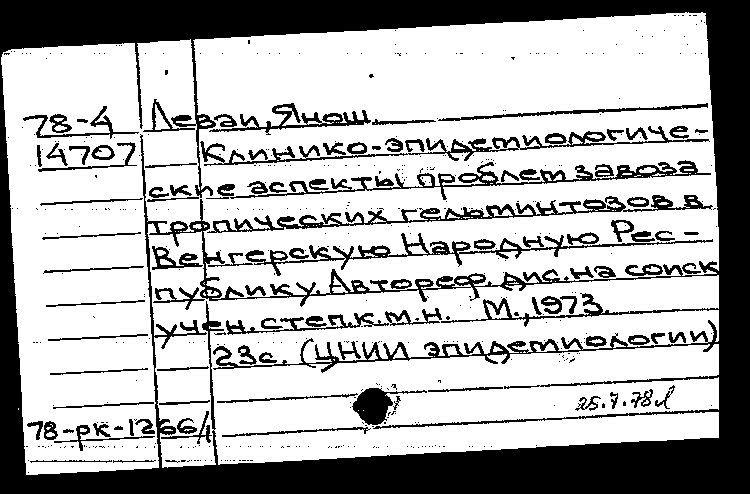 78-4 Леваи, Янош.
14707 Клинико-эпидемиологиче-
ские аспекты проблем завоза
тропических гельминтозов в
Венгерскую Народную Рес-
публику. Автореф. дис. на соиск
учен. степ. к. м. н. М., 1973.
23с. (ЦНИИ эпидемиологии)
25.7.78л
78-рк-1266/1